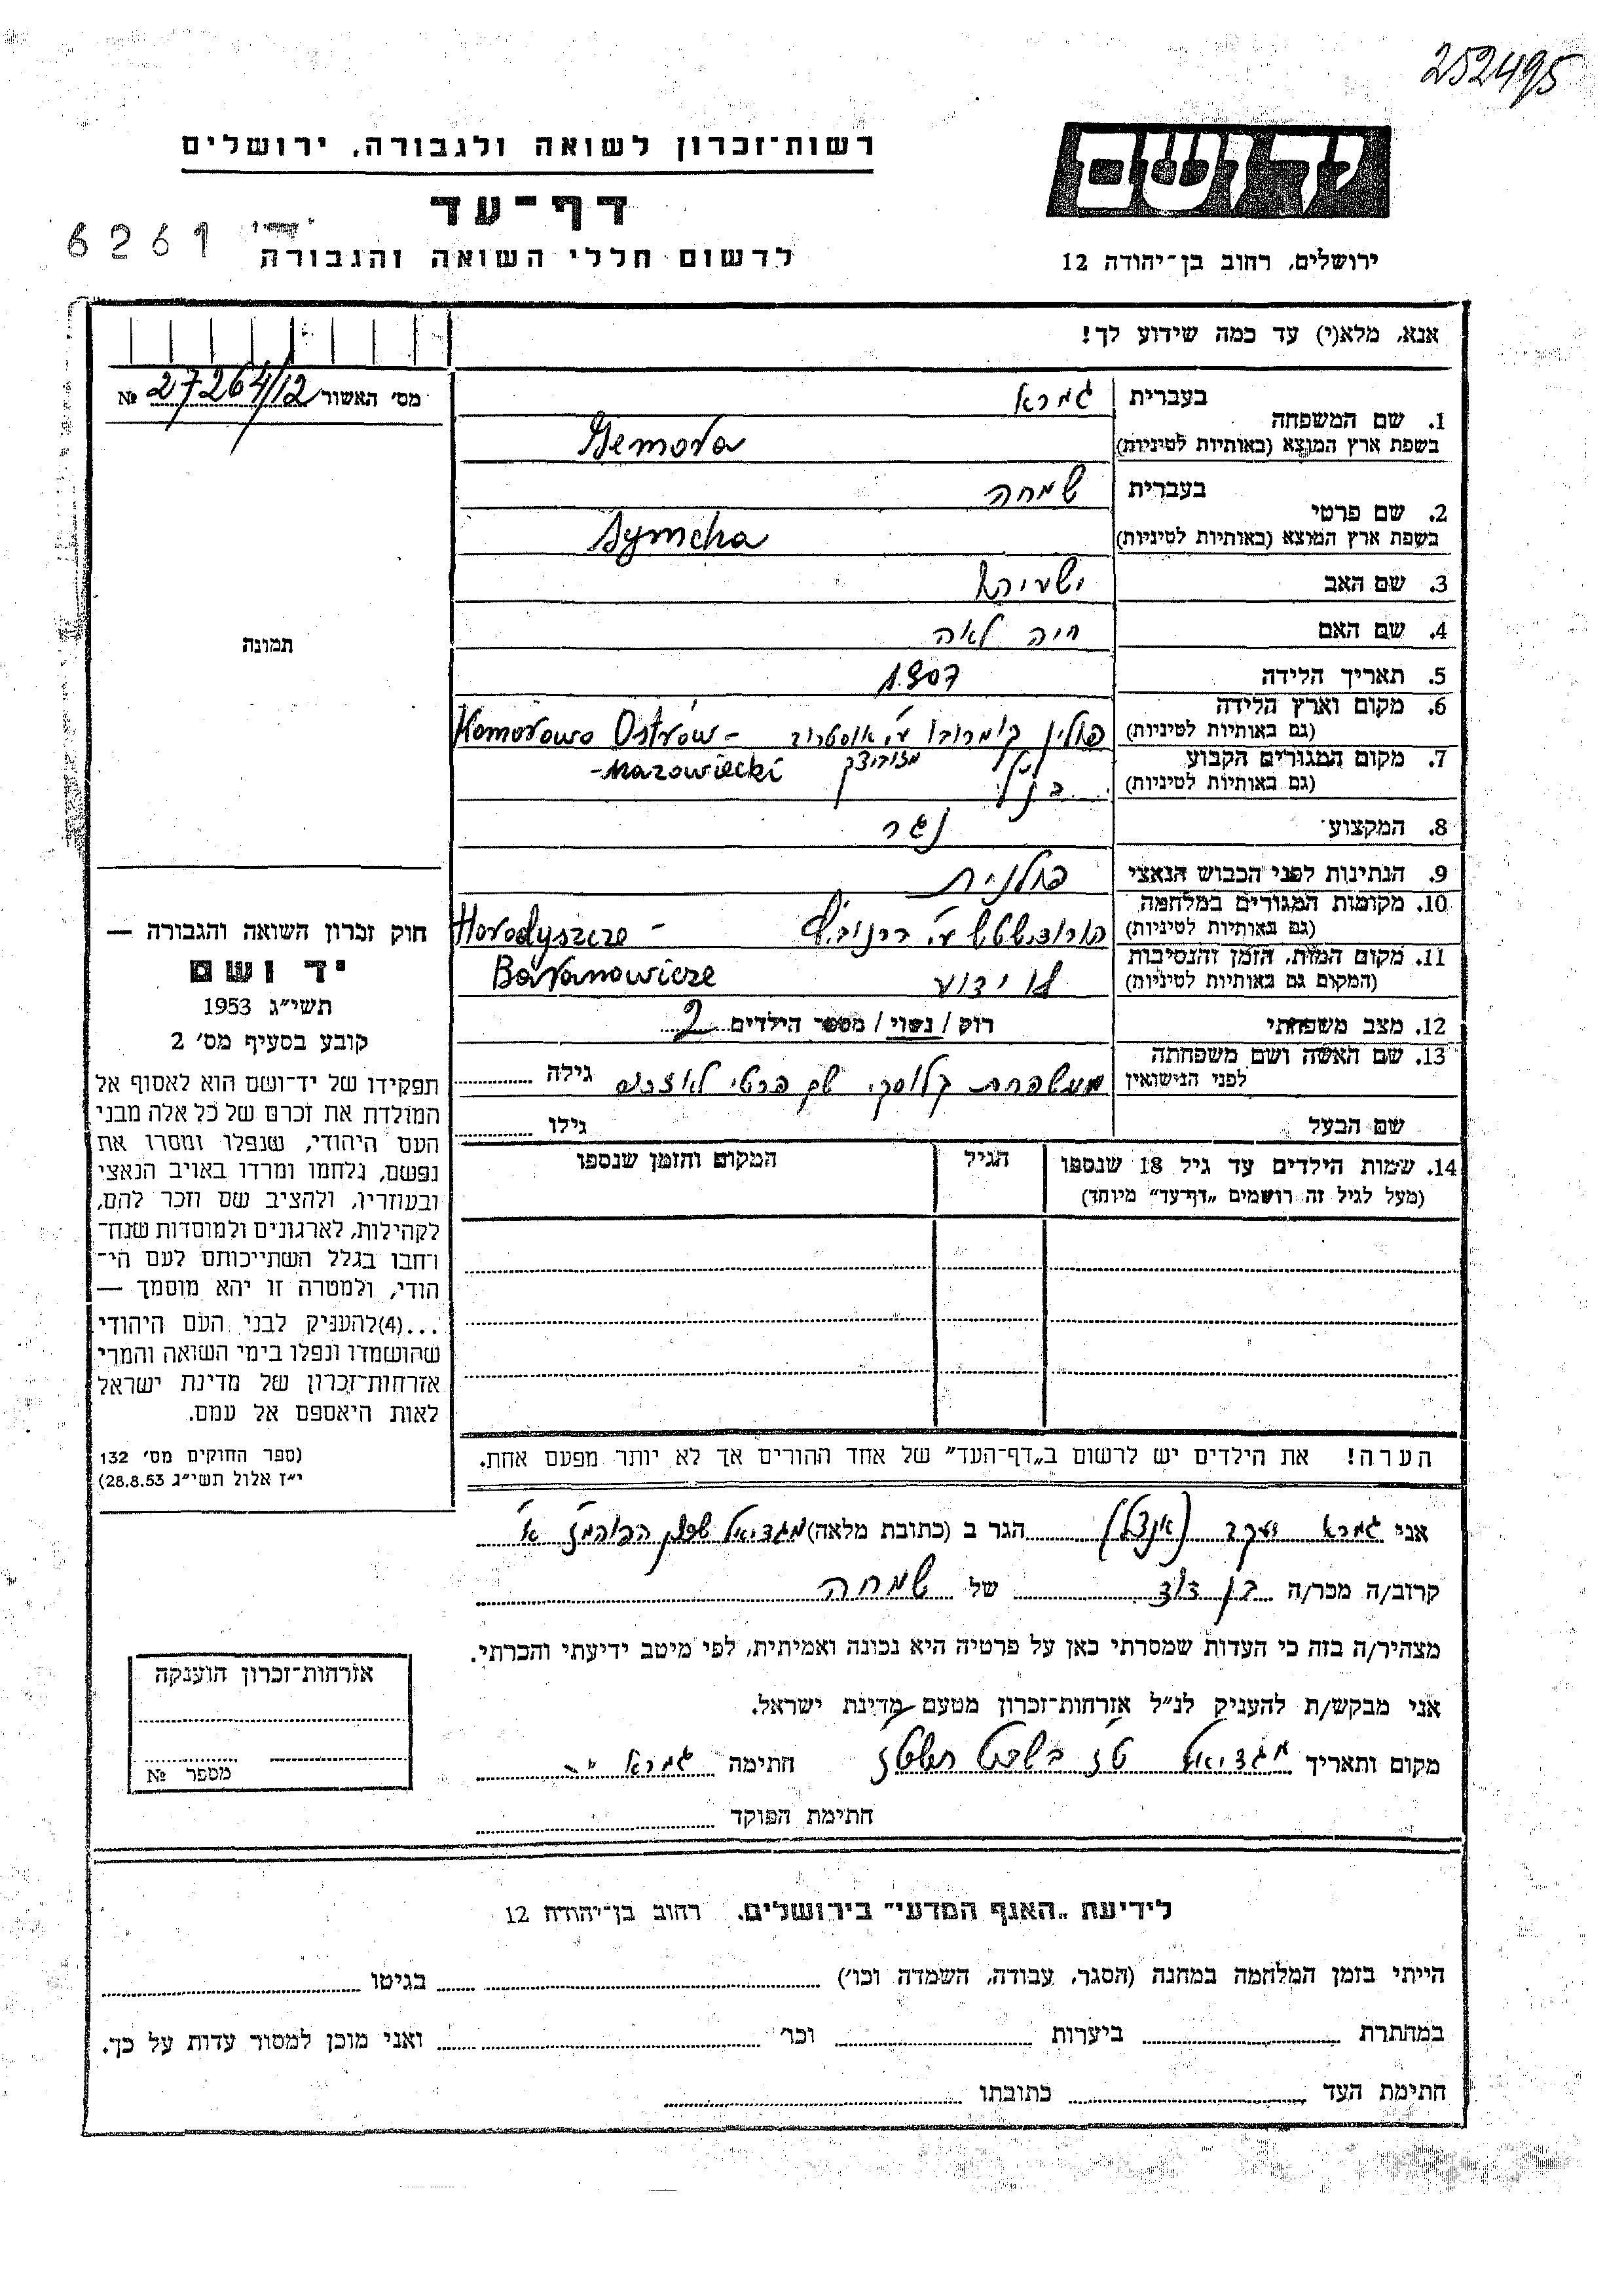 252495
רשות־זכרון לשואה ולגבורה, ירושלים
יד ושם
דף־עד
6261
לרשום חללי השואה והגבורה
ירושלים, רחוב בן־יהודה 12
אנא, מלא(י) עד כמה שידוע לך!
מס׳ האשור 27264/12 №
1. שם המשפחה
בעברית גמרא
בשפת ארץ המוצא (באותיות לטיניות) Gemora
2. שם פרטי
בעברית שמחה
בשפת ארץ המוצא (באותיות לטיניות) Symcha
3. שם האב ישעיהו
4. שם האם חיה לאה
תמונה
5. תאריך הלידה 1907
6. מקום וארץ הלידה
(גם באותיות לטיניות) פולין קומרובו ע״י אוסטרוב Komorowo Ostrów -
מזוביצק - Mazowiecki
7. מקום המגורים הקבוע
(גם באותיות לטיניות) כנ״ל
8. המקצוע נגר
9. הנתינות לפני הכבוש הנאצי פולנית
10. מקומות המגורים במלחמה
(גם באותיות לטיניות) Horodyszcze -
Baranowicze
11. מקום המות, הזמן והנסיבות
(המקום גם באותיות לטיניות) לא ידוע
12. מצב משפחתי רווק / נשוי / מספר הילדים 2
13. שם האשה ושם משפחתה
לפני הנישואין משפחת שם פרטי גילה
שם הבעל גילו
14. שמות הילדים עד גיל 18 שנספו
(מעל לגיל זה רושמים „דף־עד” מיוחד)
הגיל
המקום והזמן שנספו
הערה! את הילדים יש לרשום ב„דף־העד” של אחד ההורים אך לא יותר מפעם אחת.
חוק זכרון השואה והגבורה —
יד ושם
תשי״ג 1953
קובע בסעיף מס׳ 2
תפקידו של יד־ושם הוא לאסוף אל
המולדת את זכרם של כל אלה מבני
העם היהודי, שנפלו ומסרו את
נפשם, נלחמו ומרדו באויב הנאצי
ובעוזריו, ולהציב שם וזכר להם,
לקהילות, לארגונים ולמוסדות שנח־
רבו בגלל השתייכותם לעם הי־
הודי, ולמטרה זו יהא מוסמך —
...(4)להעניק לבני העם היהודי
שהושמדו ונפלו בימי השואה והמרי
אזרחות־זכרון של מדינת ישראל
לאות היאספם אל עמם.
(ספר החוקים מס׳ 132
י״ז אלול תשי״ג 28.8.53)
אני גמרא יעקב הגר ב (כתובת מלאה) מגדיאל
קרוב/ה מכר/ה בן דוד של שמחה
מצהיר/ה בזה כי העדות שמסרתי כאן על פרטיה היא נכונה ואמיתית, לפי מיטב ידיעתי והכרתי.
אני מבקש/ת להעניק לנ״ל אזרחות־זכרון מטעם מדינת ישראל.
מקום ותאריך מגדיאל טז בשבט חתימה גמרא י-
חתימת הפוקד
אזרחות־זכרון הוענקה
מספר №
לידיעת „האגף המדעי” בירושלים, רחוב בן־יהודה 12
הייתי בזמן המלחמה במחנה (הסגר, עבודה, השמדה וכו׳) בגיטו
במחתרת ביערות וכו׳ ואני מוכן למסור עדות על כך.
חתימת העד כתובתו